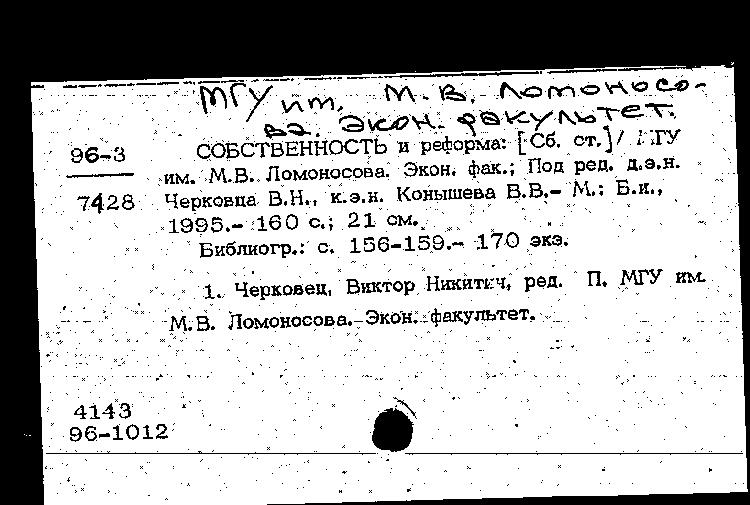 МГУ им. М.В. Ломоносо-
ва. Экон. факультет.
96-3 СОБСТВЕННОСТЬ и реформа: [Сб. ст.]/ МГУ
им. М.В. Ломоносова. Экон. фак.; Под ред. д.э.н.
7428 Черковца В.Н., к.э.н. Конышева В.В.- М.: Б.и.,
1995.- 160 с.; 21 см.
Библиогр.: с. 156-159.- 170 экз.
1. Черковец, Виктор Никитич, ред. П. МГУ им.
М.В. Ломоносова. Экон. факультет.
4143
96-1012